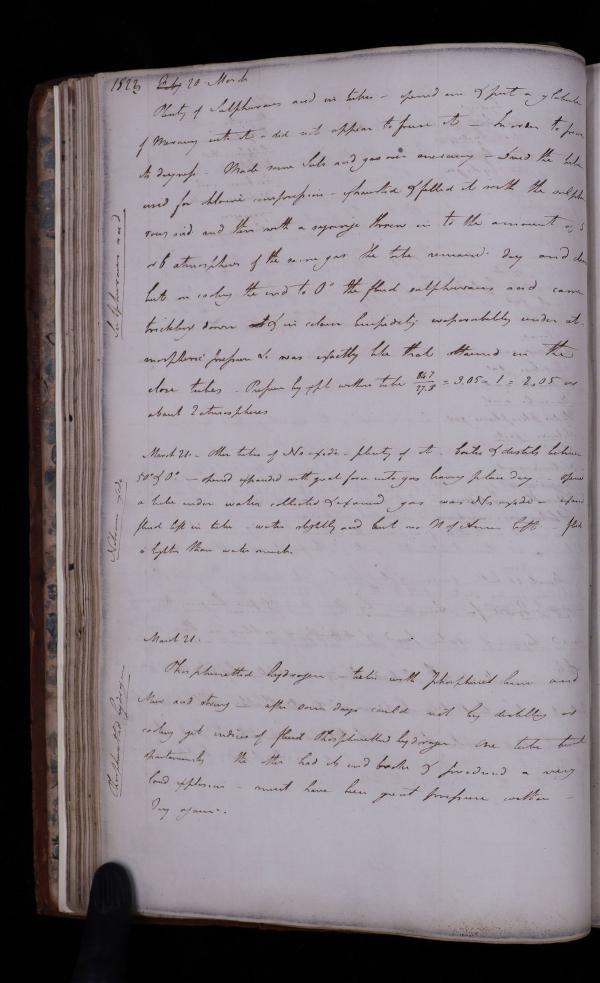 1823 Feby 20 March
Plenty of Sulphurous acid in tubes - opened one & put a globule
of Mercury into it - did not appear to freeze it - In order to
it Made some Sul. acid gas over mercury - Used the tube
used for chlorine compression - exhausted & filled it with the sulphu
rous acid and then with a syringe threw in to the amount of 5
or 6 atmospheres of the same gas the tube remained dry and clear
but on cooling the end to 0° the fluid sulphurous acid came
trickling down & in colour limpidity evaporability under at
mospheric pressure &c was exactly like that obtained in the
close tubes. Pressure by expt within tube = 3.05 - 1 = 2.05 or
about 2 atmospheres
Sulphurous acid
March 21. - Other tubes of Ns oxide - plenty of it. boiled & distils between
50° & 0° - opened expanded with great force into gas leaving place dry - opened
a tube under water collected & examined gas was Ns oxide -
fluid left in tube water slightly acid but no N of Ammo left - fluid
is lighter than water much
Nitrous oxide
March 21.
Phosphuretted hydrogen - tubes with Phosphuret lime and
Mur acid strong - after some days could not by distilling or
cooling get indices of fluid Phosphuretted hydrogen one tube burst
spontaneously the other had its end broke & produced a very
loud explosion - must have been great pressure within -
Try again.
Phosphuretted hydrogen